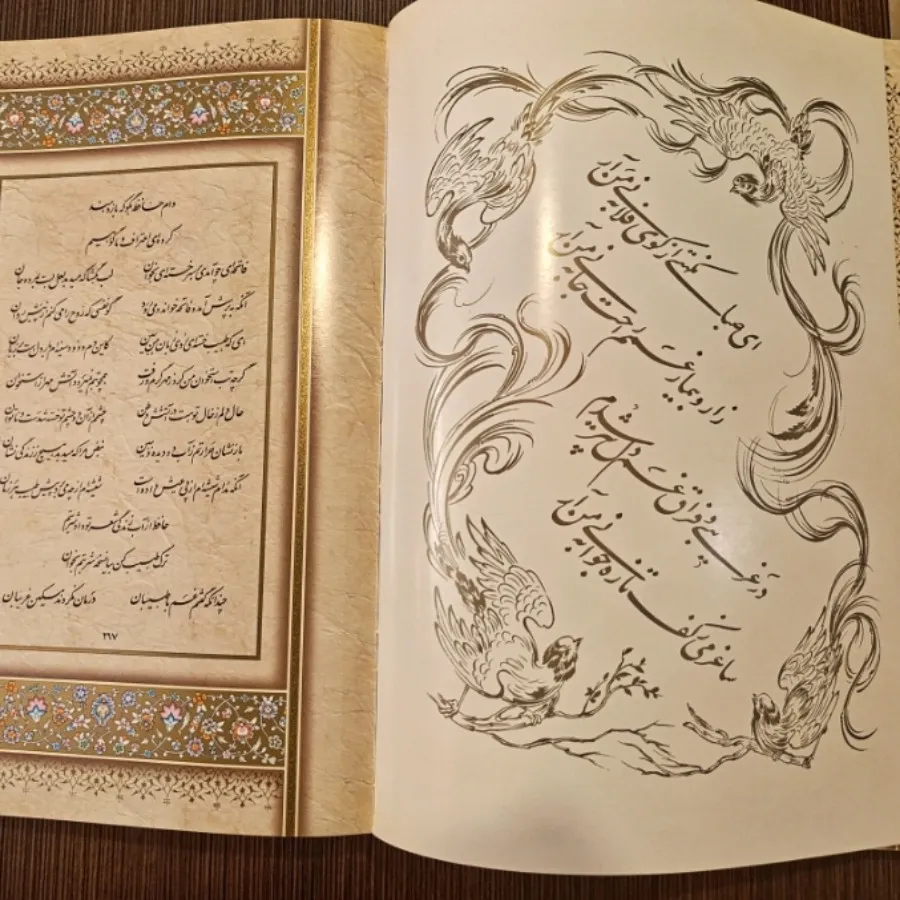 وام حافظ بگو که بازدهند
کرده‌ای اعتراف و ما گوهیم
فاتحه‌ای چو آمدی بر سر خسته‌ای بخوان لب بگشا که می‌دهد لعل لبت به مرده جان
آنکه به پرسش آمد و فاتحه خواند و می‌رود گو نفسی که روح را می‌کنم از پیش روان
ای که طبیب خسته‌ای روی زبان من ببین کاین دم و دود سینه‌ام بار دل است بر زبان
گرچه تب استخوان من کرد ز مهر گرم و رفت همچو تبم نمی‌رود آتش مهر از استخوان
حال دلم ز خال تو هست در آتشش وطن چشمم از آن دو چشم تو خسته شدست و ناتوان
بازنشان حرارتم ز آب دو دیده و ببین نبض مرا که می‌دهد هیچ ز زندگی نشان
آنکه مدام شیشه‌ام از پی عیش داده است شیشه‌ام از چه می‌برد پیش طبیب هر زمان
حافظ از آب زندگی شعر تو داد شربتم
ترک طبیب کن بیا نسخه شربتم بخوان
چندانکه گفتم غم با طبیبان درمان نکردند مسکین غریبان
۲۶۷
ای صبا نکهتی از کوی فلانی به من آر
زار و بیمار غمم راحت جانی به من آر
در غریبی و فراق و غم دل پیر شدم
ساغر می ز کف تازه جوانی به من آر